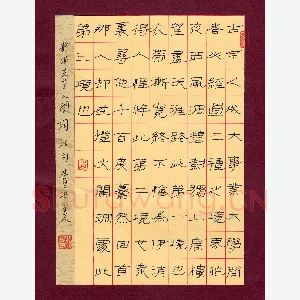 古今之成大事業大學問
者必經過三種之境界昨
夜西風凋碧樹獨上高樓
望盡天涯路此第一境也
衣帶漸寬終不悔為伊消
得人憔悴此第二境也眾
裏尋他千百度驀然回首
那人卻在燈火闌珊處此
第三境也
靜安先生人間詞話句